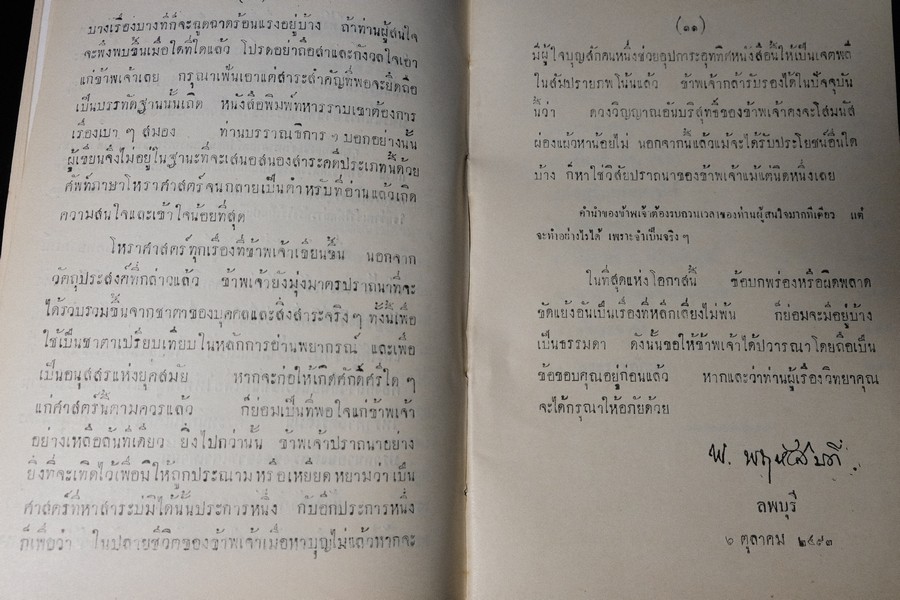 บางเรื่องบางทีก็จะฉูดฉาดร้อนแรงอยู่บ้าง ถ้าท่านผู้สนใจ
จะพึงพบขึ้นเมื่อใดที่ใดแล้ว โปรดอย่าถือสาและกังวลใจเอา
แก่ข้าพเจ้าเลย กรุณาเฟ้นเอาแต่สาระสำคัญที่พอจะยึดถือ
เป็นบรรทัดฐานนั้นเถิด หนังสือพิมพ์ทหารราบเขาต้องการ
เรื่องเบา ๆ สมอง ท่านบรรณาธิการ ๆ บอกอย่างนั้น
ผู้เขียนจึงไม่อยู่ในฐานะที่จะเสนอสนองสาระคดีประเภทนี้ด้วย
ศัพท์ภาษาโหราศาสตร์จนกลายเป็นตำหรับที่อ่านแล้วเกิด
ความสนใจและเข้าใจน้อยที่สุด
โหราศาสตร์ทุกเรื่องที่ข้าพเจ้าเขียนขึ้น นอกจาก
วัตถุประสงค์ที่กล่าวแล้ว ข้าพเจ้ายังมุ่งมาตรปราถนาที่จะ
ได้รวบรวมขึ้นจากชาตาของบุคคลและสิ่งสำระจริง ๆ ทั้งนี้เพื่อ
ใช้เป็นชาตาเปรียบเทียบในหลักการอ่านพยากรณ์ และเพื่อ
เป็นอนุสสรแห่งยุคสมัย หากจะก่อให้เกิดศักดิ์ศรีใด ๆ
แก่ศาสตร์นี้ตามควรแล้ว ก็ย่อมเป็นที่พอใจแก่ข้าพเจ้า
อย่างเหลือล้นทีเดียว ยิ่งไปกว่านั้น ข้าพเจ้าปราถนาอย่าง
ยิ่งที่จะเทิดไว้เพื่อมิให้ถูกประณามหรือเหยียดหยามว่าเป็น
ศาสตร์ที่หาสำระบ่มิได้นั้นประการหนึ่ง กับอีกประการหนึ่ง
ก็เพื่อว่า ในปลายชีวิตของข้าพเจ้าเมื่อหาบุญไม่แล้วหากจะ
(๑๑)
มีผู้ใจบุญสักคนหนึ่งช่วยอุปการะอุททิศหนังสือนี้ให้เป็นเจตพลี
ในสัมปรายภพโน้นแล้ว ข้าพเจ้ากล้ารับรองได้ในปัจจุบัน
นี้ว่า ดวงวิญญาณอันบริสุทธิ์ของข้าพเจ้าคงจะโสมนัส
ผ่องแผ้วหาน้อยไม่ นอกจากนี้แล้วแม้จะได้รับประโยชน์อื่นใด
บ้าง ก็หาใช่วิสัยปราถนาของข้าพเจ้าแม้แต่นิดหนึ่งเลย
คำนำของข้าพเจ้าต้องรบกวนเวลาของท่านผู้สนใจมากทีเดียว แต่
จะทำอย่างไรได้ เพราะจำเป็นจริง ๆ
ในที่สุดแห่งโอกาสนี้ ข้อบกพร่องหรือผิดพลาด
ขัดแย้งอันเป็นเรื่องที่หลีกเลี่ยงไม่พ้น ก็ย่อมจะมีอยู่บ้าง
เป็นธรรมดา ดังนั้นขอให้ข้าพเจ้าได้ปวารณาโดยถือเป็น
ข้อขอบคุณอยู่ก่อนแล้ว หากและว่าท่านผู้เรืองวิทยาคุณ
จะได้กรุณาให้อภัยด้วย
พ. พฤหัสบดี
ลพบุรี
๖ ตุลาคม ๒๔๙๓